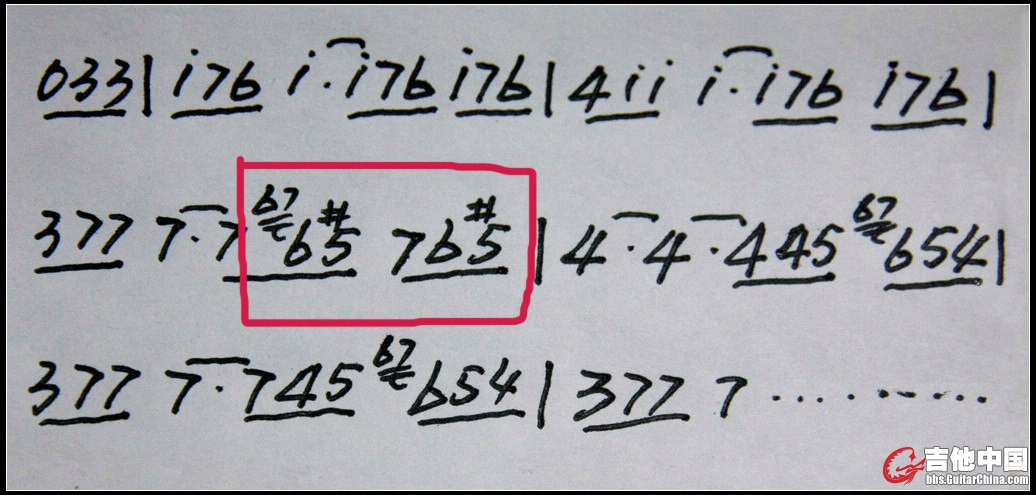 033| i76 i·i76 i76| 4ii i·i76 i76|
377 7·7 67 6#5 76#5 | 4·4·445 67 654|
377 7·745 67 654| 377 7 ··········
吉他中国
bbs.GuitarChina.com